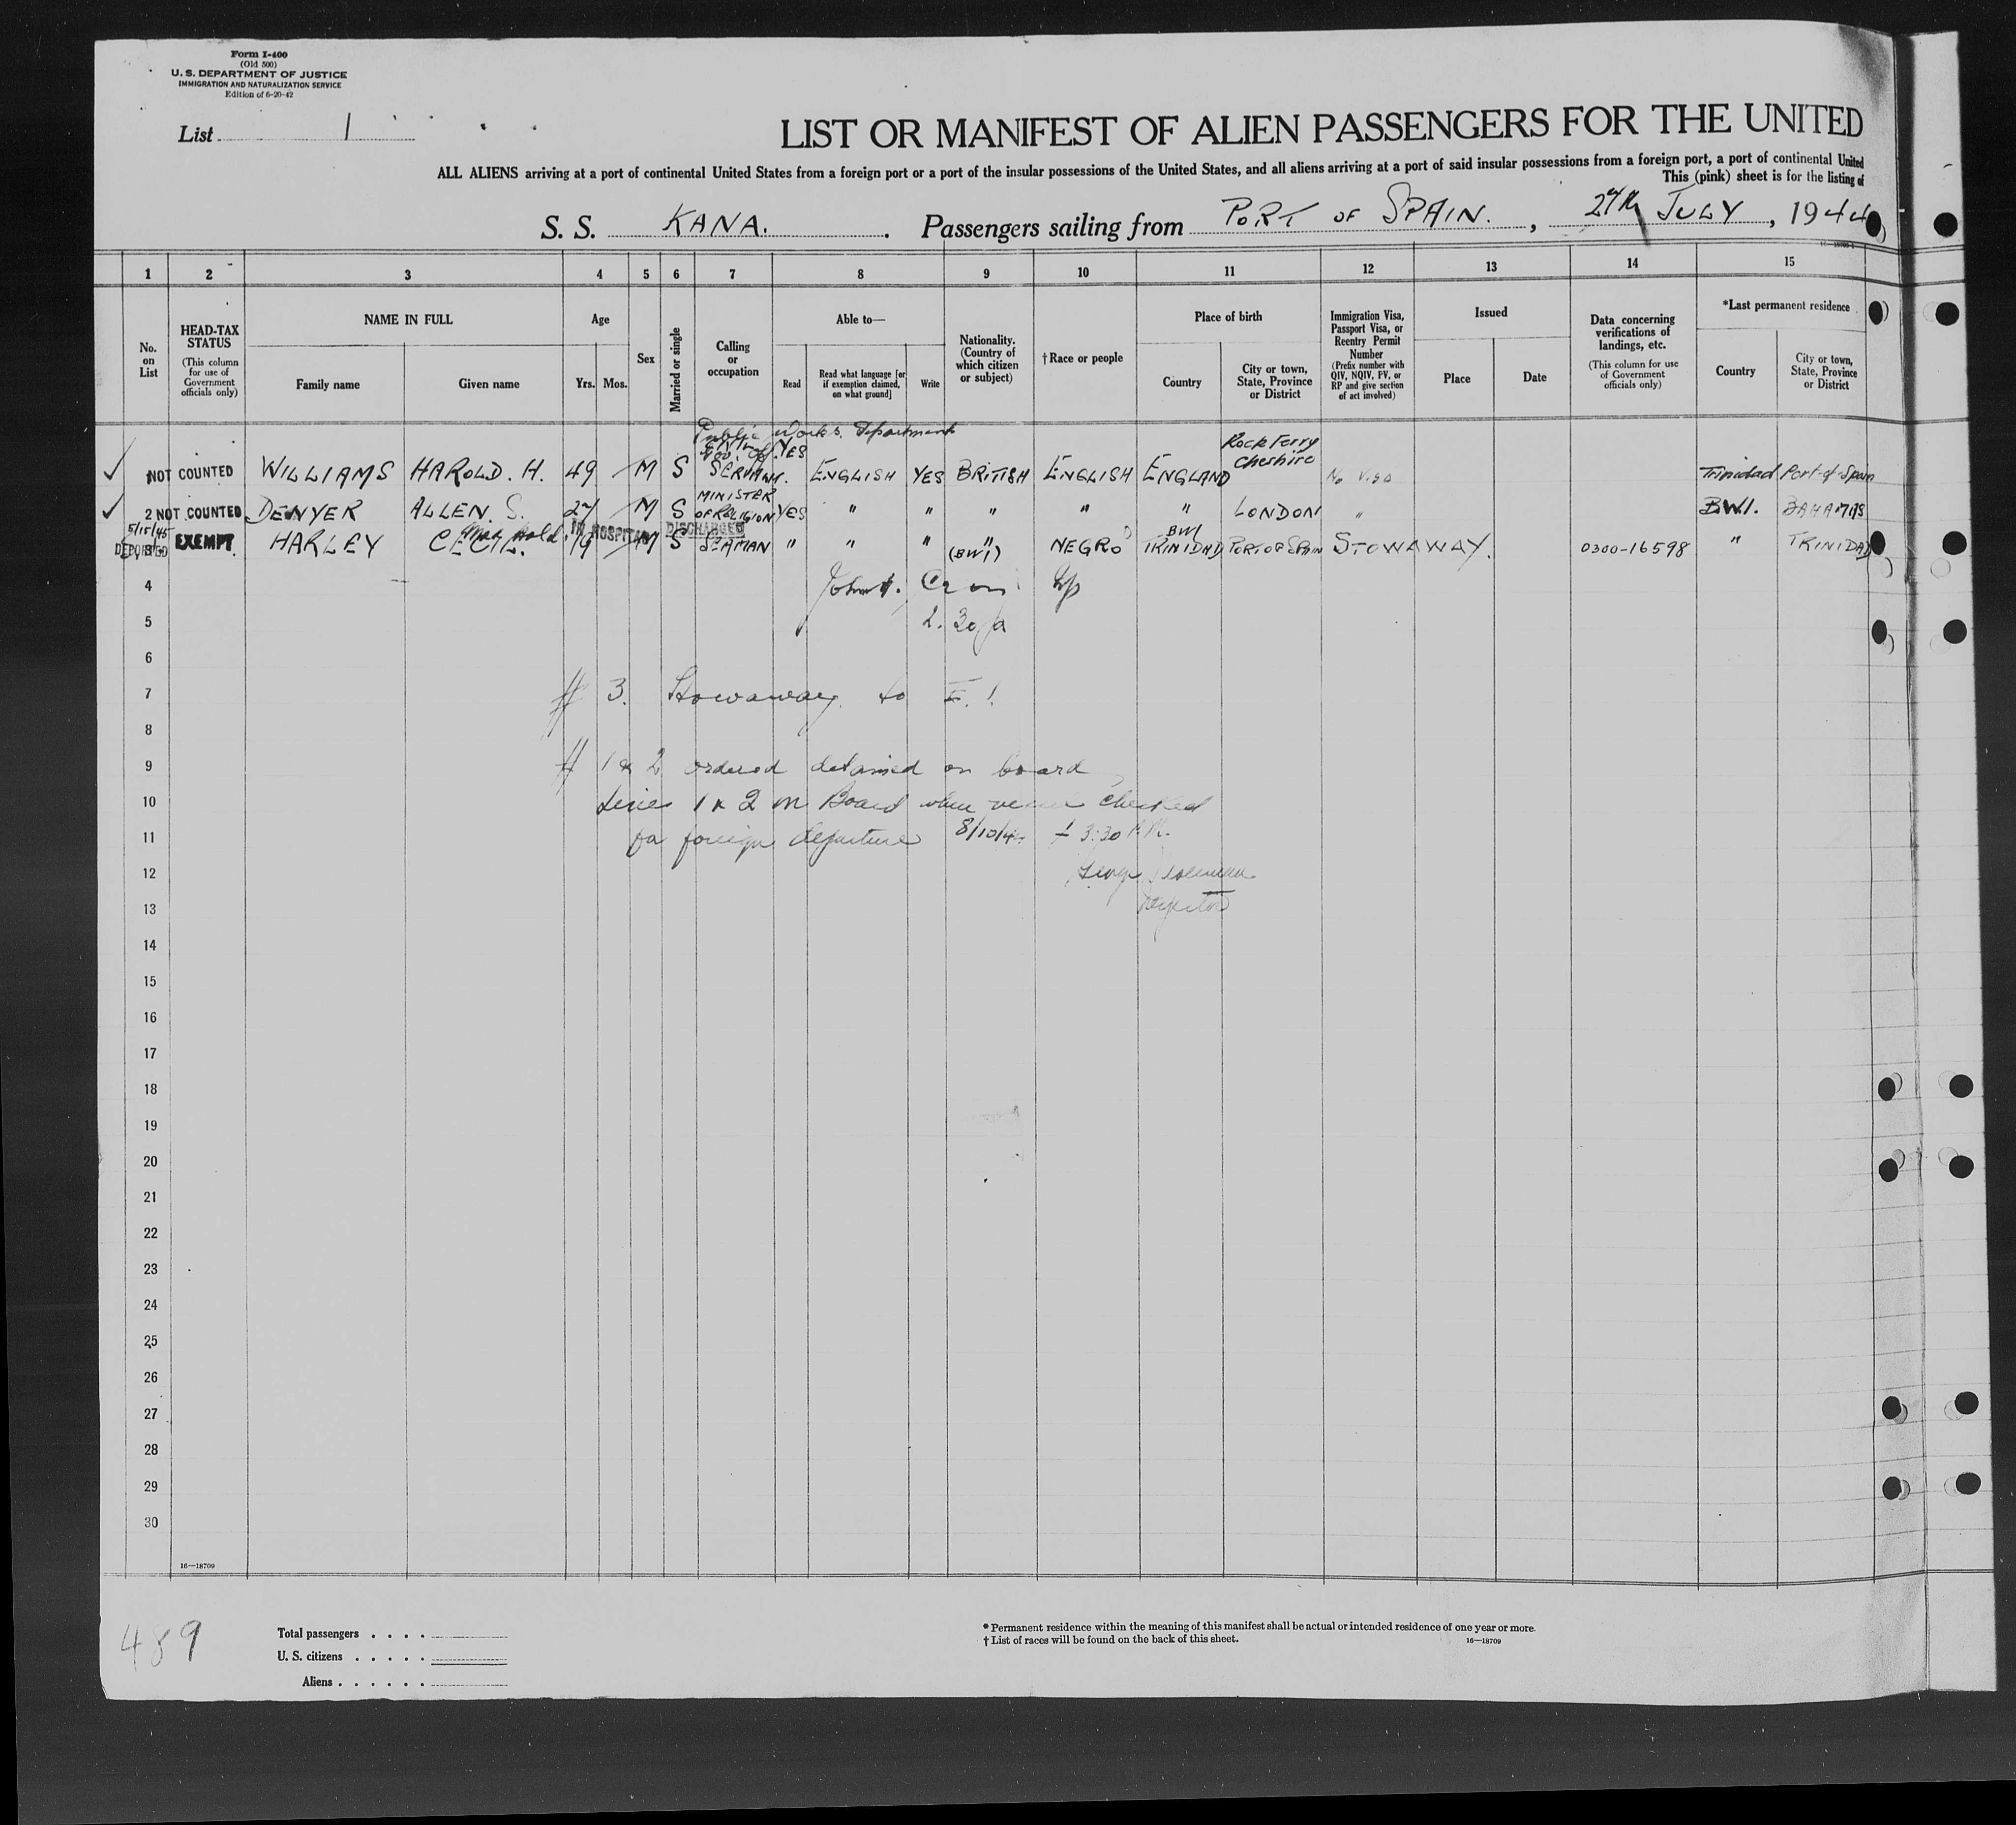 Form I-400
(Old 500)
U. S. DEPARTMENT OF JUSTICE
IMMIGRATION AND NATURALIZATION SERVICE
Edition of 6-20-42
List 1
LIST OR MANIFEST OF ALIEN PASSENGERS FOR THE UNITED
ALL ALIENS arriving at a port of continental United States from a foreign port or a port of the insular possessions of the United States, and all aliens arriving at a port of said insular possessions from a foreign port, a port of continental United
This (pink) sheet is for the listing of
S. S. KANA. Passengers sailing from PORT OF SPAIN. , 27th JULY , 1944
1 2 3 4 5 6 7 8 9 10 11 12 13 14 15
No. on List
HEAD-TAX STATUS (This column for use of Government officials only)
NAME IN FULL Family name Given name
Age Yrs. Mos.
Sex
Married or single
Calling or occupation
Able to— Read Read what language [or if exemption claimed, on what ground] Write
Nationality. (Country of which citizen or subject)
†Race or people
Place of birth Country City or town, State, Province or District
Immigration Visa, Passport Visa, or Reentry Permit Number (Prefix number with QIV, NQIV, PV, or RP and give section of act involved)
Issued Place Date
Data concerning verifications of landings, etc. (This column for use of Government officials only)
*Last permanent residence Country City or town, State, Province or District
Public Works Department
NOT COUNTED WILLIAMS HAROLD. H. 49 M S CIVIL SERVANT. YES ENGLISH YES BRITISH ENGLISH ENGLAND Rock Ferry Cheshire No Visa Trinidad Port-of-Spain
2 NOT COUNTED DENYER ALLEN. S. 27 M S MINISTER OF RELIGION YES " " " " " LONDON " B.W.I. BAHAMAS
5/15/45 DEPORTED 3 EXEMPT HARLEY CECIL. 19 IN HOSPITAL M S DISCHARGED SEAMAN " " " " (BWI) NEGRO BWI TRINIDAD PORT OF SPAIN STOWAWAY. 0300-16598 " TRINIDAD
4
5 2.30
6
7 # 3. Stowaway to
8
9 # 1 & 2 ordered detained on board
10 Line 1 & 2 on Board when vessel checked
11 for foreign departure 8/10/44 3:30 P.M.
12
13 Inspector
14
15
16
17
18
19
20
21
22
23
24
25
26
27
28
29
30
16—18709
489
Total passengers
U. S. citizens
Aliens
* Permanent residence within the meaning of this manifest shall be actual or intended residence of one year or more.
† List of races will be found on the back of this sheet.
16—18709